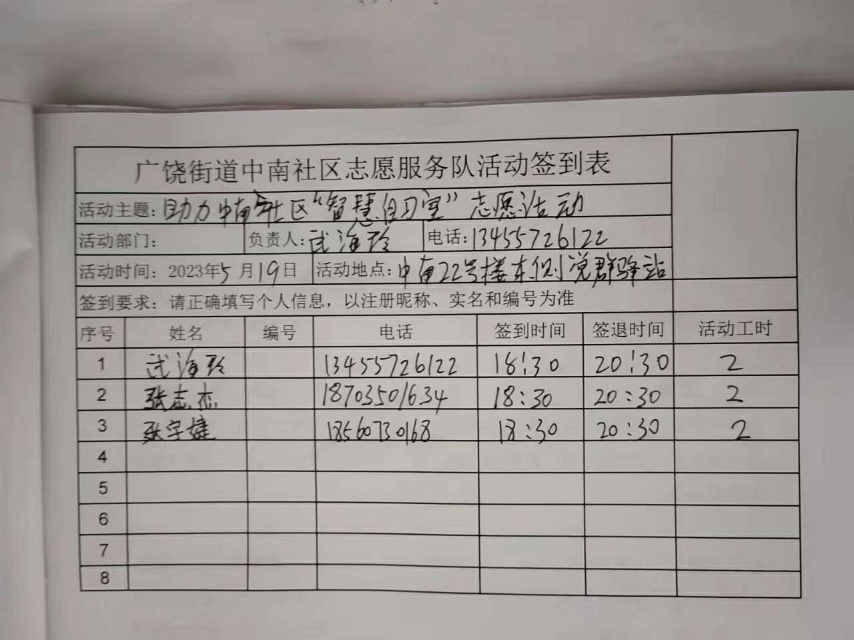 广饶街道中南社区志愿服务队活动签到表
活动主题:助力中南社区“智慧自习室”志愿活动
活动部门: 负责人:武海玲 电话:13455726122
活动时间:2023年5月19日 活动地点:中南22号楼东侧党群驿站
签到要求:请正确填写个人信息,以注册昵称、实名和编号为准
序号 姓名 编号 电话 签到时间 签退时间 活动工时
1 武海玲 13455726122 18:30 20:30 2
2 张志杰 18703501634 18:30 20:30 2
3 张宇婕 18560730168 18:30 20:30 2
4
5
6
7
8